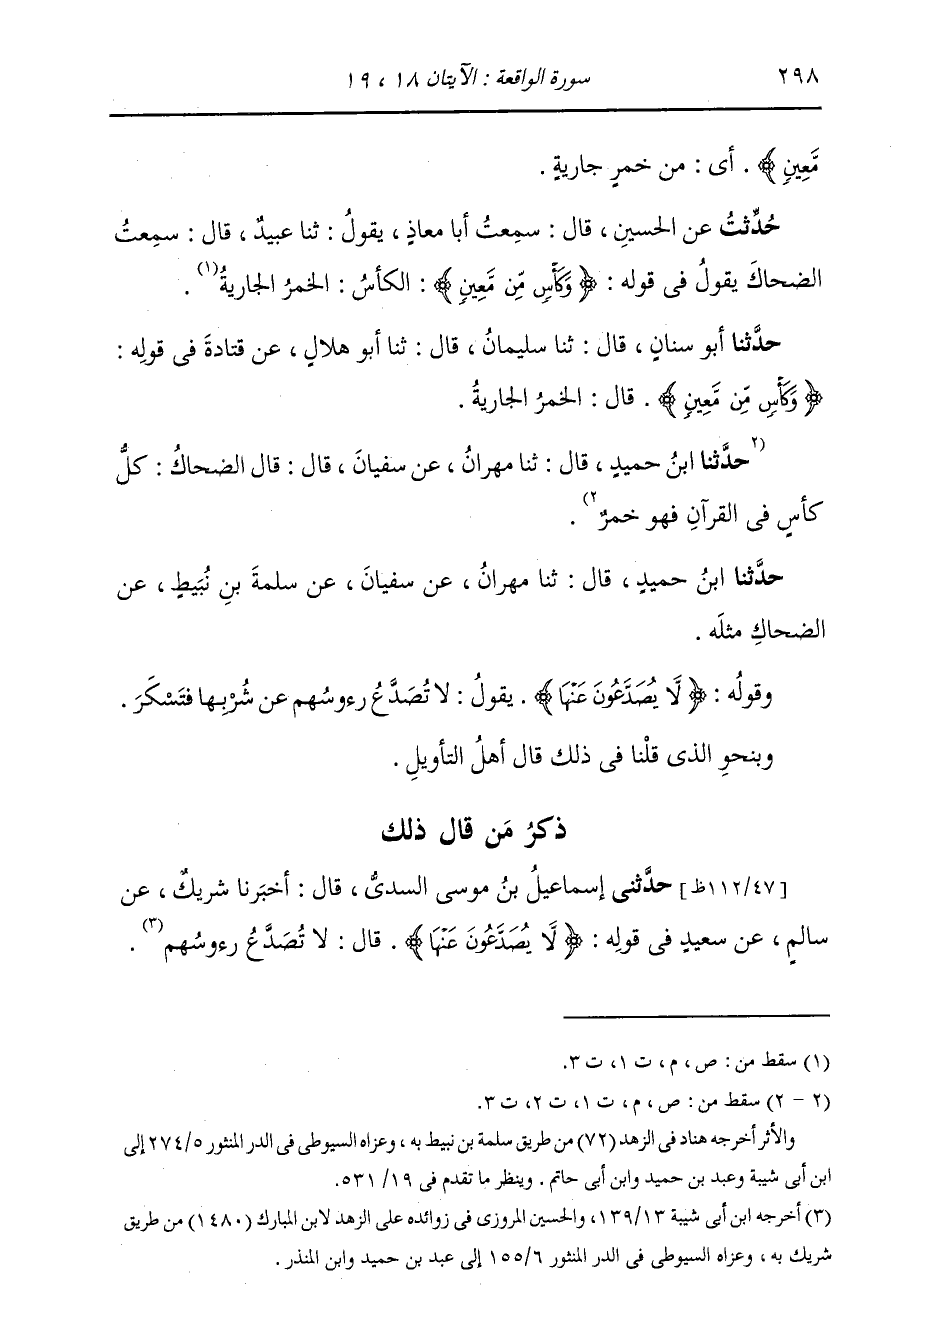 ٢٩٨ سورة الواقعة : الآيتان ١٨ ، ١٩
مَّعِينٍ ﴾ . أى : من خمرٍ جاريةٍ .
حُدِّثتُ عن الحسينِ ، قال : سمِعتُ أبا معاذٍ ، يقولُ : ثنا عبيدٌ ، قال : سمِعتُ
الضحاكَ يقولُ فى قوله : ﴿ وَكَأْسٍ مِّن مَّعِينٍ ﴾ : الكأسُ : الخمرُ الجاريةُ(١) .
حدَّثنا أبو سنانٍ ، قال : ثنا سليمانُ ، قال : ثنا أبو هلالٍ ، عن قتادةَ فى قولِه :
﴿ وَكَأْسٍ مِّن مَّعِينٍ ﴾ . قال : الخمرُ الجاريةُ .
(٢حدَّثنا ابنُ حميدٍ ، قال : ثنا مهرانُ ، عن سفيانَ ، قال : قال الضحاكُ : كلُّ
كأسٍ فى القرآنِ فهو خمرٌ٢) .
حدَّثنا ابنُ حميدٍ ، قال : ثنا مهرانُ ، عن سفيانَ ، عن سلمةَ بنِ نُبَيطٍ ، عن
الضحاكِ مثلَه .
وقولُه : ﴿ لَّا يُصَدَّعُونَ عَنْهَا ﴾ . يقولُ : لا تُصَدَّعُ رءوسُهم عن شُرْبِها فتَسْكَرَ .
وبنحوِ الذى قلْنا فى ذلك قال أهلُ التأويلِ .
ذكرُ مَن قال ذلك
[٤٧/ ١١٢ظ] حدَّثنى إسماعيلُ بنُ موسى السدىُّ ، قال : أخبَرنا شريكٌ ، عن
سالمٍ ، عن سعيدٍ فى قولِه : ﴿ لَّا يُصَدَّعُونَ عَنْهَا ﴾ . قال : لا تُصَدَّعُ رءوسُهم(٣) .
(١) سقط من : ص ، م ، ت ١، ت ٣.
(٢ - ٢) سقط من : ص ، م ، ت ١، ت ٢، ت ٣.
والأثر أخرجه هناد فى الزهد (٧٢) من طريق سلمة بن نبيط به ، وعزاه السيوطى فى الدر المنثور ٢٧٤/٥ إلى
ابن أبى شيبة وعبد بن حميد وابن أبى حاتم . وينظر ما تقدم فى ١٩/ ٥٣١.
(٣) أخرجه ابن أبى شيبة ١٣٩/١٣، والحسين المروزى فى زوائده على الزهد لابن المبارك (١٤٨٠) من طريق
شريك به ، وعزاه السيوطى فى الدر المنثور ١٥٥/٦ إلى عبد بن حميد وابن المنذر .